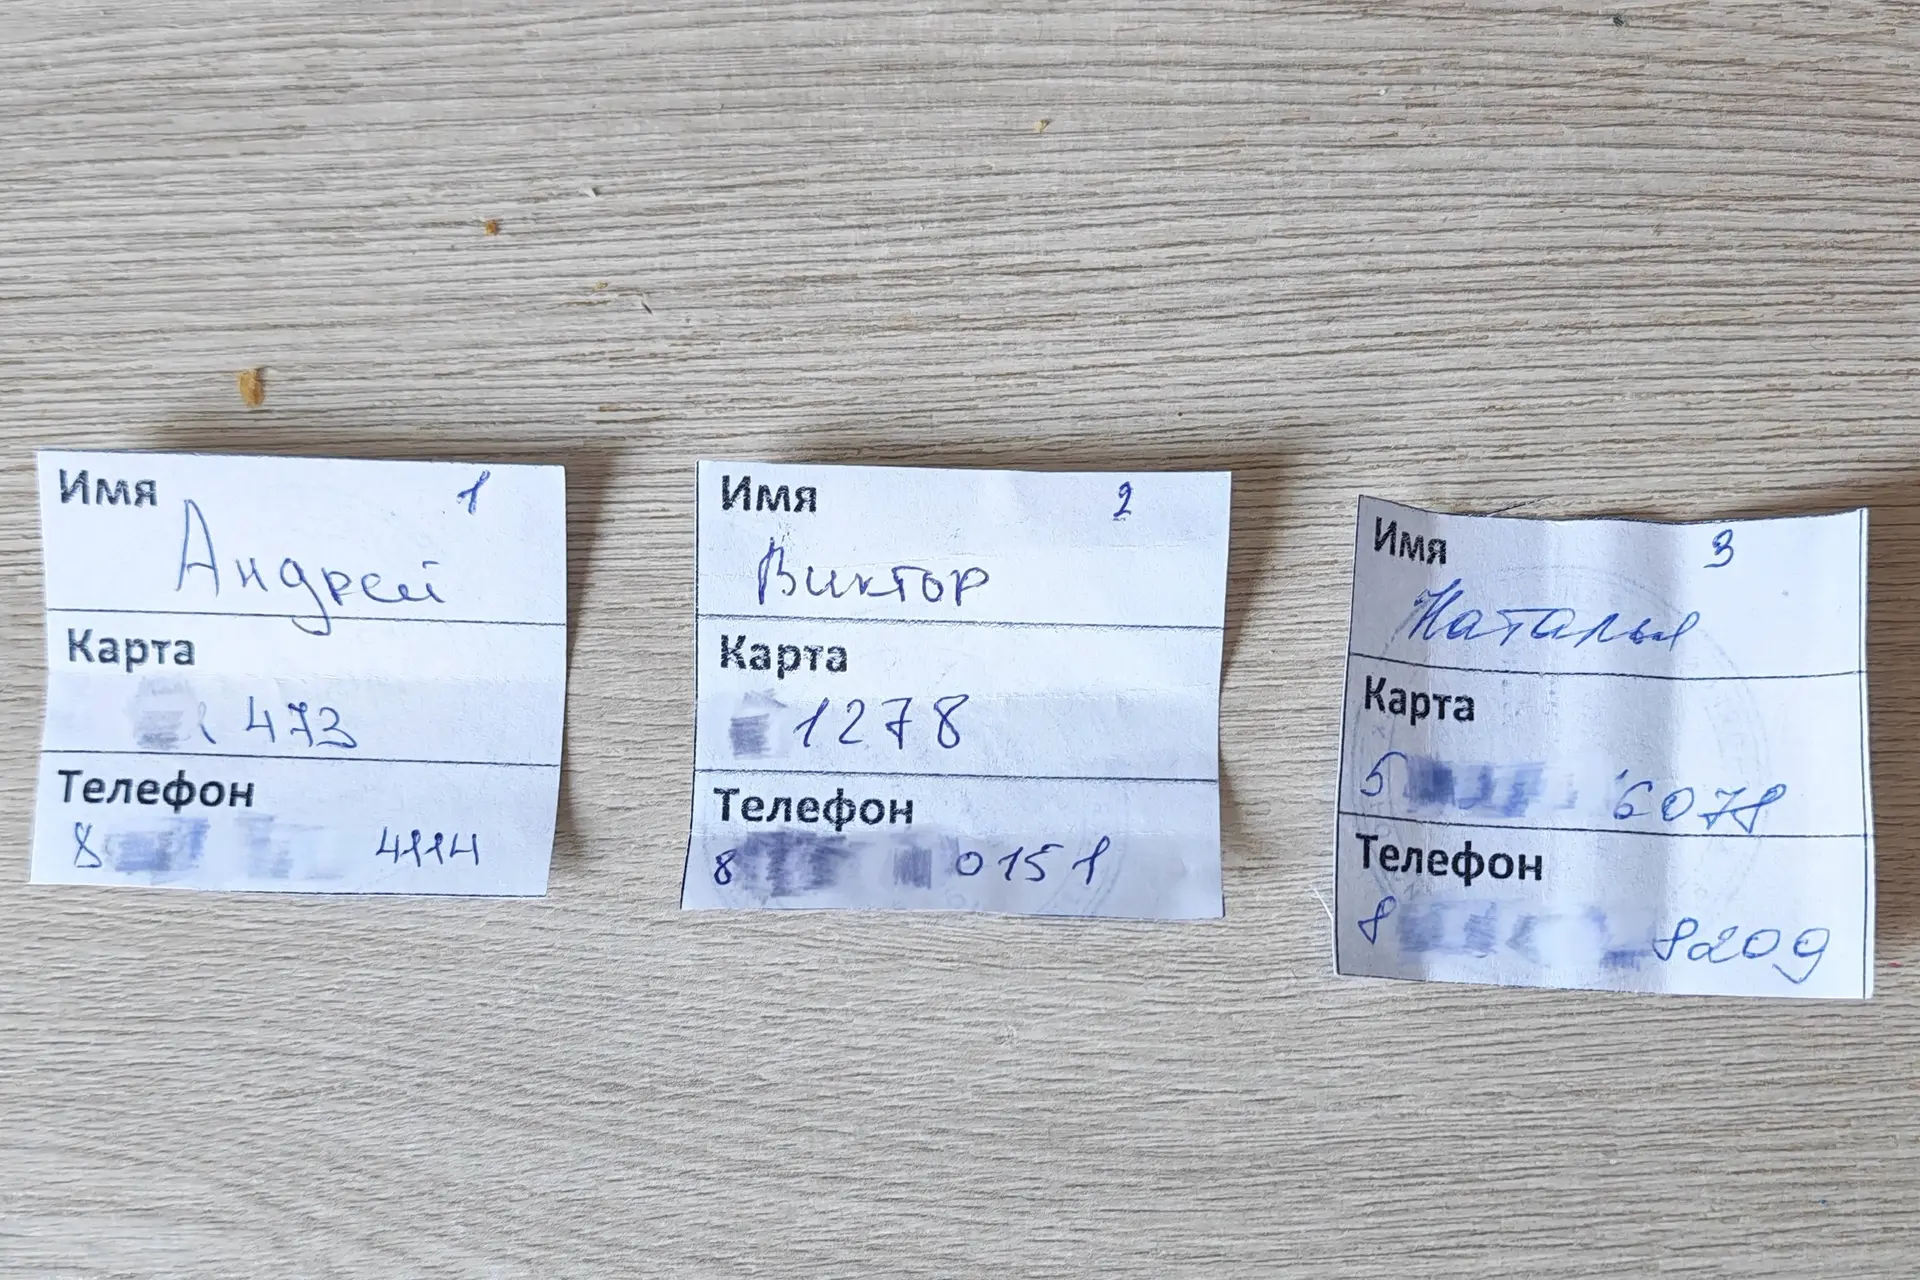 Имя 1
Андрей
Карта
473
Телефон
8 4114
Имя 2
Виктор
Карта
1278
Телефон
8 0151
Имя 3
Наталья
Карта
5 6078
Телефон
8 8209